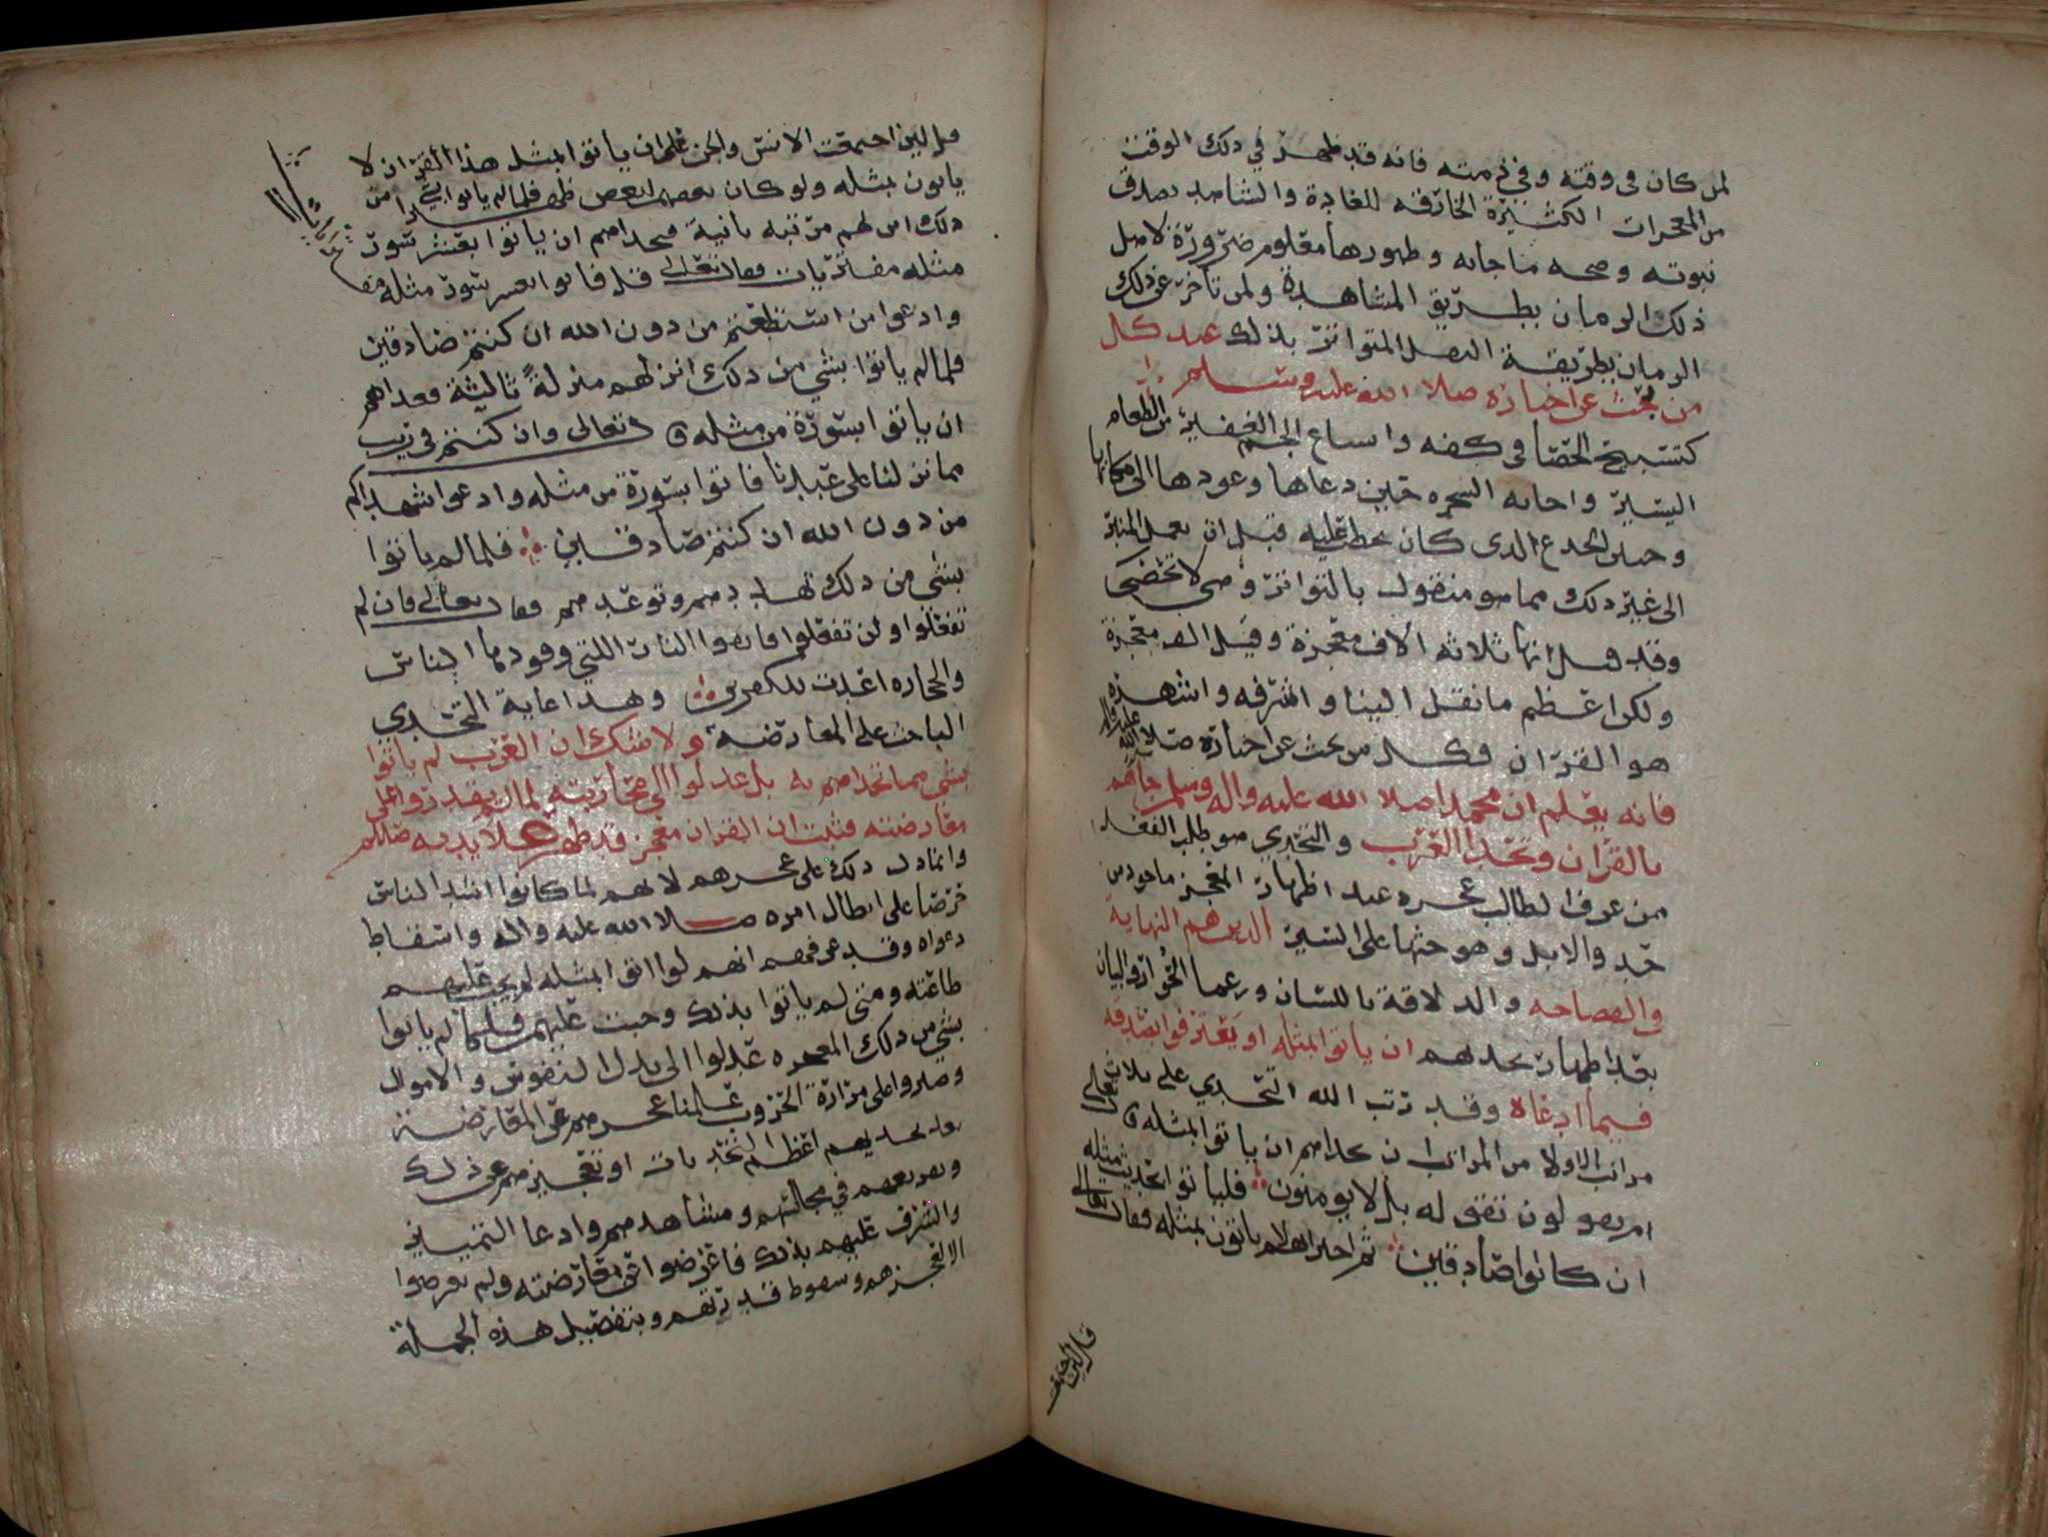 لمن كان فى وقته وفي زمنه فانه قد ظهر في ذلك الوقت
من المعجزات الكثيرة الخارقه للعادة والشاهد بصدق
نبوته وصحه ما جا به وظهورها معلوم ضرورة لاهل
ذلك الزمان بطريق المشاهدة ولمن تاخر عن ذلك
الزمان بطريقة النقل المتواتر بذلك عند كل
من بحث عن اخباره صلا الله عليه وسلم
كتسبيح الحصا فى كفه واشباع الجم الغفير من الطعام
اليسير واجابه الشجره حين دعاها وعودها الى مكانها
وحنين الجدع الذى كان يخطب عليه قبل ان يعمل المنبر
الى غير ذلك مما هو منقول بالتواتر وهي لا تحصى
وقد قيل انها ثلاثه الاف معجزة وقيل الف معجزة
ولكن اعظم ما نقل الينا واشرفه واشهره
هو القران فكل من بحث عن اخباره صلا الله عليه واله
فانه يعلم ان محمدا صلا الله عليه واله وسلم جاهم
بالقران وتحدا العرب والتحدي هو طلب الفعل
ممن عرف الطالب عجزه عند اظهار المعجز ماخود من
حد والابل وهو حثها على السير الدين هم النهاية
في الفصاحه والدلاقة باللسان ورعما الحوار والبيان
بقد اظهار تحديهم ان ياتوا بمثله او يعترفوا بصدقه
فيما ادعاه وقد رتب الله التحدي على ثلاث
مراتب الاولا من المراتب ان تحداهم ان ياتوا بمثله ق تعالى
ام يقولون تقوله بل لا يومنون فلياتوا بحديث مثله
ان كانوا صادقين ثم اخبر انهم لا ياتون بمثله فقال تعالى
قل لين اجتمعت
قل لين اجتمعت الانس والجن على ان ياتوا بمثل هذا القران لا
ياتون بمثله ولو كان بعضهم لبعض ظهيرا فلما لم ياتوا بشي من
ذلك انزلهم مرتبه ثانية فتحداهم ان ياتوا بعشر سور
مثله مفتريات فقال تعالى قل فاتوا بعشر سور مثله مفتريات
وادعوا من استطعتم من دون الله ان كنتم صادقين
فلما لم ياتوا بشي من ذلك انزلهم منزلة ثالثة فتحداهم
ان ياتوا بسورة من مثله ق تعالى وان كنتم في ريب
مما نزلنا على عبدنا فاتوا بسورة من مثله وادعوا شهداكم
من دون الله ان كنتم صادقين فلما لم ياتوا
بشي من ذلك تهددهم وتوعدهم فقال تعالى فان لم
تفعلوا ولن تفعلوا فاتقوا النار اللتي وقودها الناس
والحجاره اعدت للكفرين وهذا غاية التحدي
الباعث على المعارضه ولا شك ان العرب لم ياتوا
بشي مما تحداهم به بل عدلوا الى محاربته لما لم يقدروا على
معارضته فثبت ان القران معجز قد ظهر على يديه صلعم
وانما دل ذلك على عجزهم لانهم لما كانوا اشد الناس
حرصا على ابطال امره صلا الله عليه واله واسقاط
دعواه وقد عرفهم انهم لو اتوا بمثله لم يجب عليهم
طاعته ومتى لم ياتوا بذلك وجبت عليهم فلما لم ياتوا
بشي من ذلك المعجزه عدلوا الى بدل النفوس والاموال
وصبروا على مرارة الحروب علمنا عجزهم عن المعارضة
بعد تحديهم اعظم التحديات او تعجيزهم عن ذلك
وتقريعهم في مجالسهم ومشاهدهم وادعا التمييز
والشرف عليهم بذلك فاعرضوا عن معارضته ولم يعرضوا
الا لعجزهم وسقوط قدرتهم وبتفصيل هذه الجملة